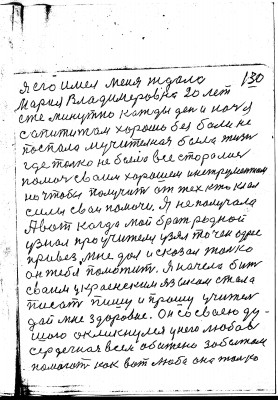 130
я его имел меня ждала
Мария Владимеровна 20 лет
сте минутно кажды ден и ноч я
с апититом хорошо без боли не
поспала мучителная была жизн
где толко не было все старалис
помоч своим хорошем инструментом
но чтобы получит от тех кто клал
сили свои помочи. Я не получала
А вот когда мой брат родной
узнал про учителя узял то чен одне
привез мне дал и сказал толко
он тебя помотит. Я начела бит
своим украенским языком стала
писат пишу и прошу учител
дай мне здоровье. Он со своею ду-
шою окликнулся у него любов
сердечная всем обижено заботам
помогат как вот люба она толко